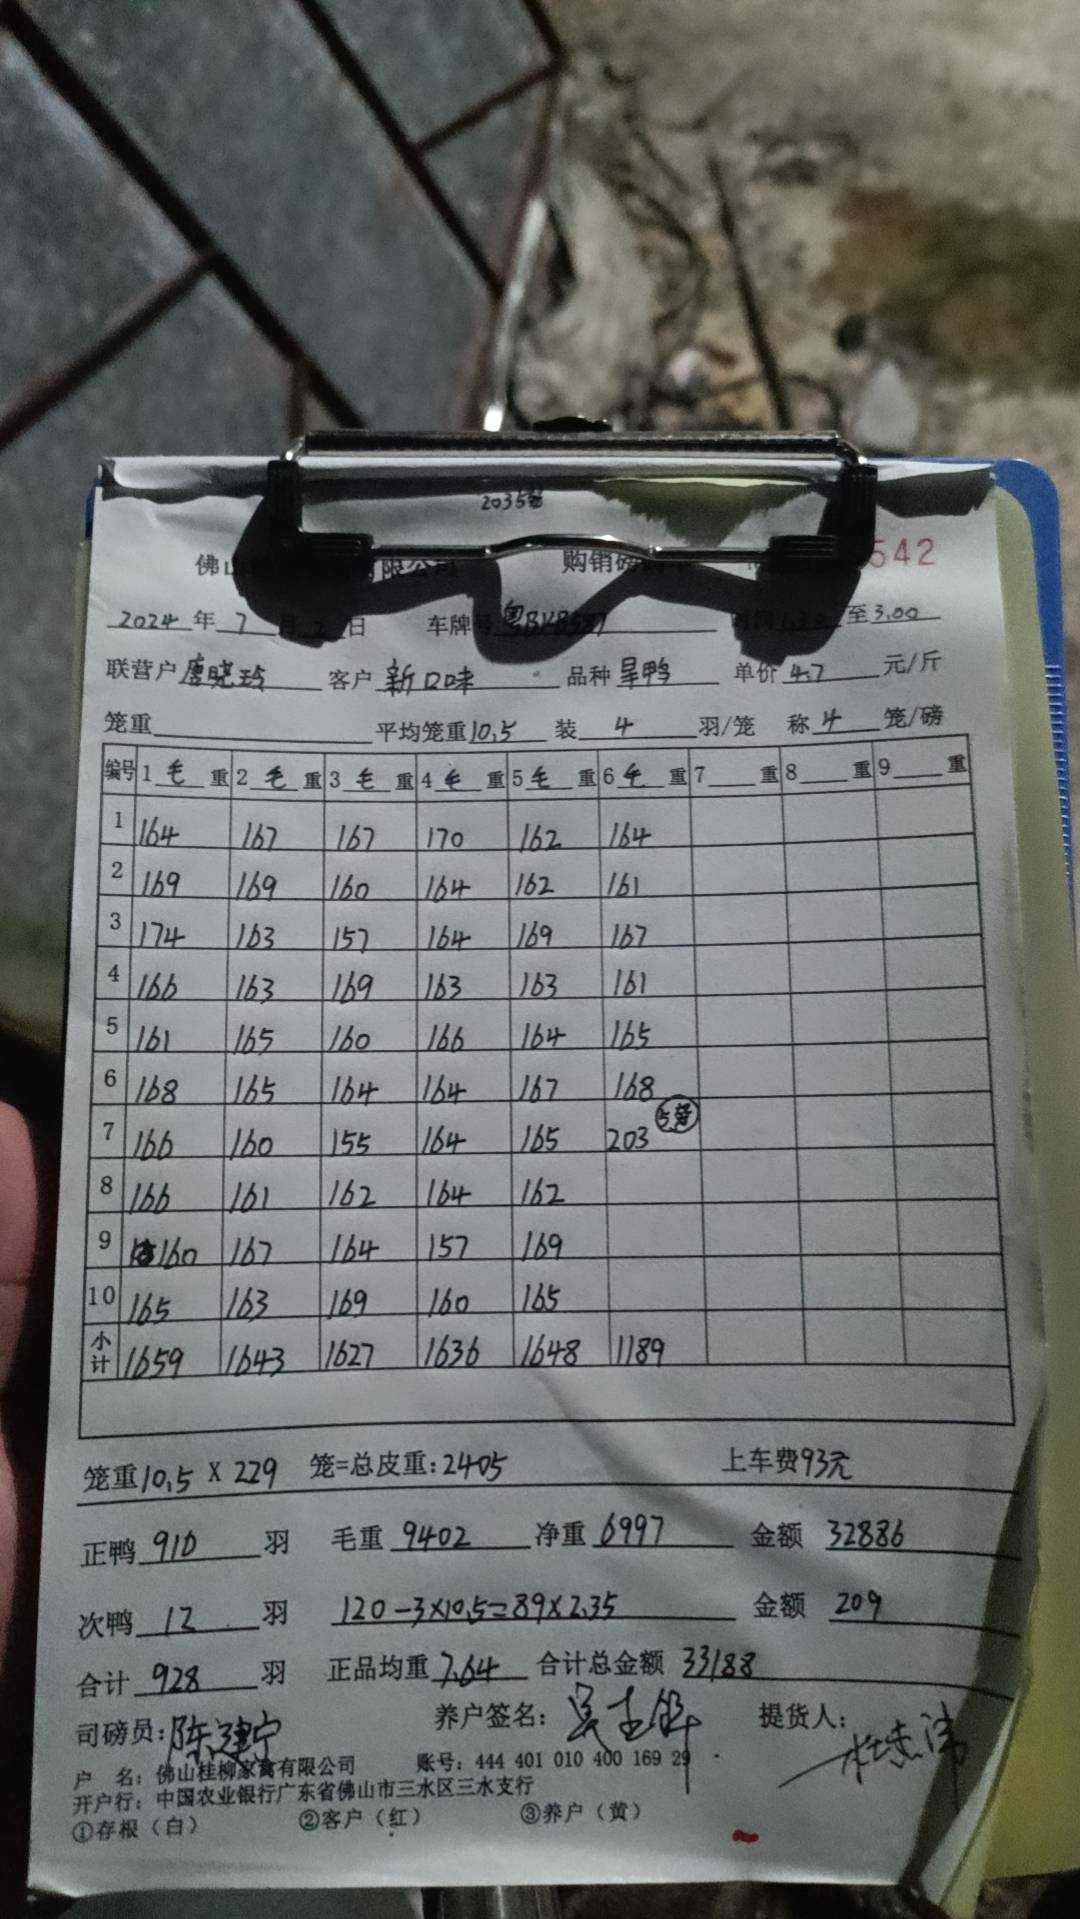 2035笼
佛山 有限公司 购销磅 542
2024年7月2日 车牌号 粤BK8587 时间1.30至3.00
联营户 唐晓玲 客户 新口味 品种 旱鸭 单价 4.7 元/斤
笼重 平均笼重10.5 装 4 羽/笼 称 4 笼/磅
编号 1 毛 重 2 毛 重 3 毛 重 4 毛 重 5 毛 重 6 毛 重 7 重 8 重 9 重
1 164 167 167 170 162 164
2 169 169 160 164 162 161
3 174 163 157 164 169 167
4 166 163 169 163 163 161
5 161 165 160 166 164 165
6 168 165 164 164 167 168
7 166 160 155 164 165 203 5笼
8 166 161 162 164 162
9 160 167 164 157 169
10 165 163 169 160 165
小计 1659 1643 1627 1636 1648 1189
笼重10.5 X 229 笼=总皮重:2405 上车费93元
正鸭 910 羽 毛重 9402 净重 6997 金额 32886
次鸭 12 羽 120-3×10.5=89×2.35 金额 209
合计 928 羽 正品均重 7.64 合计总金额 33188
司磅员: 陈建宁 养户签名: 提货人:
户 名: 佛山桂柳家禽有限公司 账号: 444 401 010 400 169 29
开户行: 中国农业银行广东省佛山市三水区三水支行
①存根（白） ②客户（红） ③养户（黄）